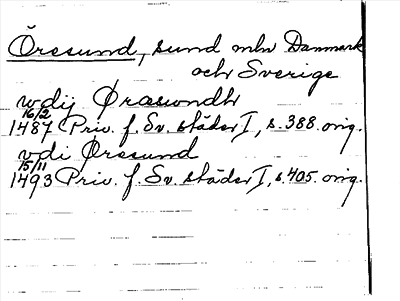 Öresund, sund mln Danmark
och Sverige
wdij Øræswndh
16/2
1487 Priv. f. Sv. städer I, s. 388. orig.
vdi Øresund
15/11
1493 Priv. f. Sv. städer I, s. 405. orig.